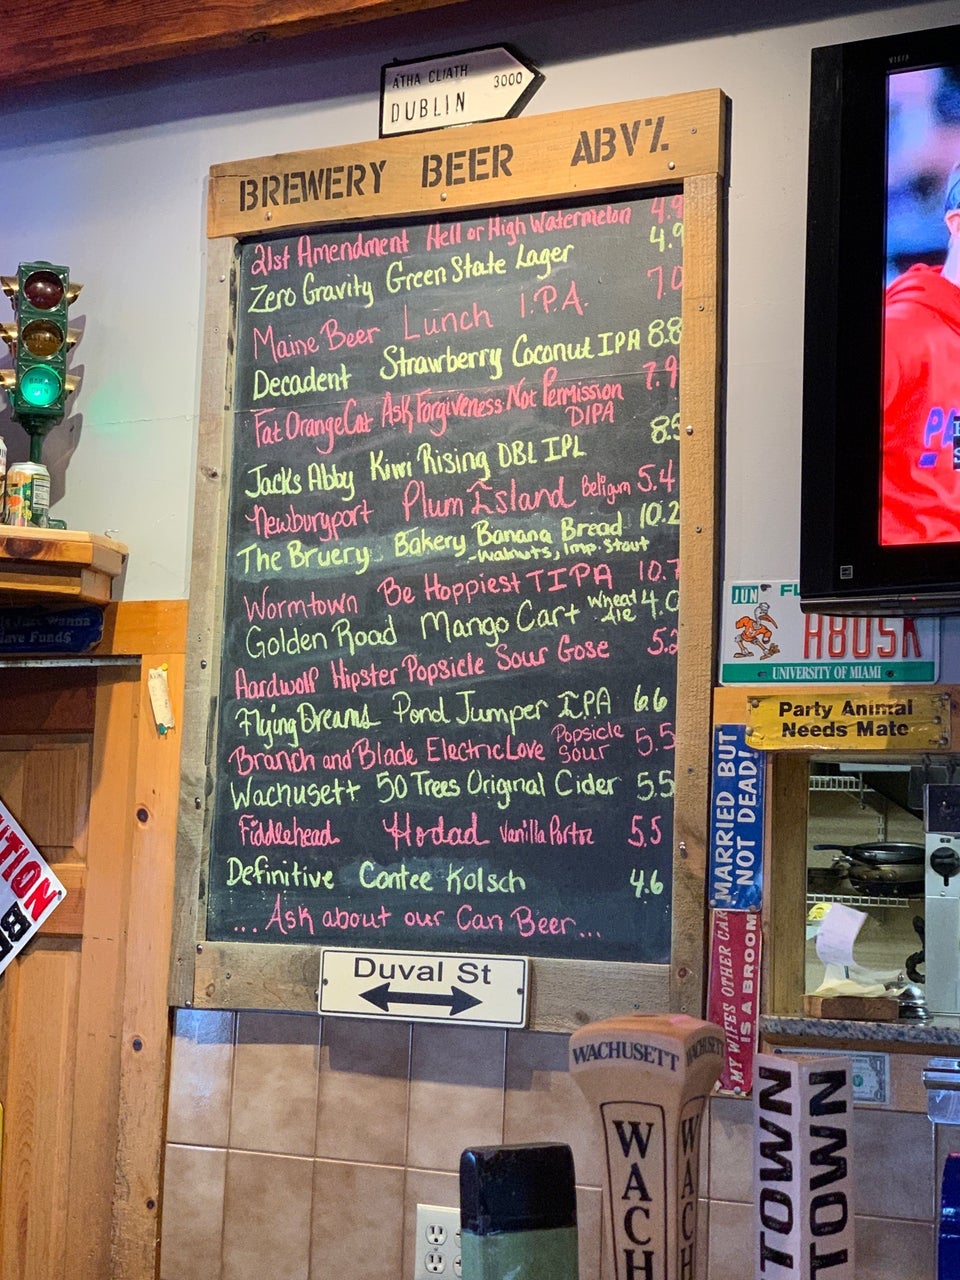 ÁTHA CLIATH 3000
DUBLIN
BREWERY BEER ABV%
21st Amendment Hell or High Watermelon 4.9
Zero Gravity Green State Lager 4.9
Maine Beer Lunch I.P.A. 7.0
Decadent Strawberry Coconut IPA 8.8
Fat OrangeCat Ask Forgiveness Not Permission 7.9
DIPA
Jacks Abby Kiwi Rising DBL IPL 8.5
Newburyport Plum Island Beligum 5.4
The Bruery Bakery Banana Bread 10.2
-Walnuts, Imp. Stout
Wormtown Be Hoppiest TIPA 10.7
Golden Road Mango Cart Wheat Ale 4.0
Aardwolf Hipster Popsicle Sour Gose 5.2
Flying Dreams Pond Jumper I.P.A 6.6
Branch and Blade Electric Love Popsicle Sour 5.5
Wachusett 50 Trees Original Cider 5.5
Fiddlehead Hodad Vanilla Porter 5.5
Definitive Contee Kolsch 4.6
...Ask about our Can Beer...
Duval St
VIZIO
JUN FL
A805K
UNIVERSITY OF MIAMI
Party Animal
Needs Mate
MARRIED BUT
NOT DEAD!
MY WIFE'S OTHER CAR
IS A BROOM
WACHUSETT
WACH
WACH
TOWN
TOWN
Just Wanna
Have Fund$